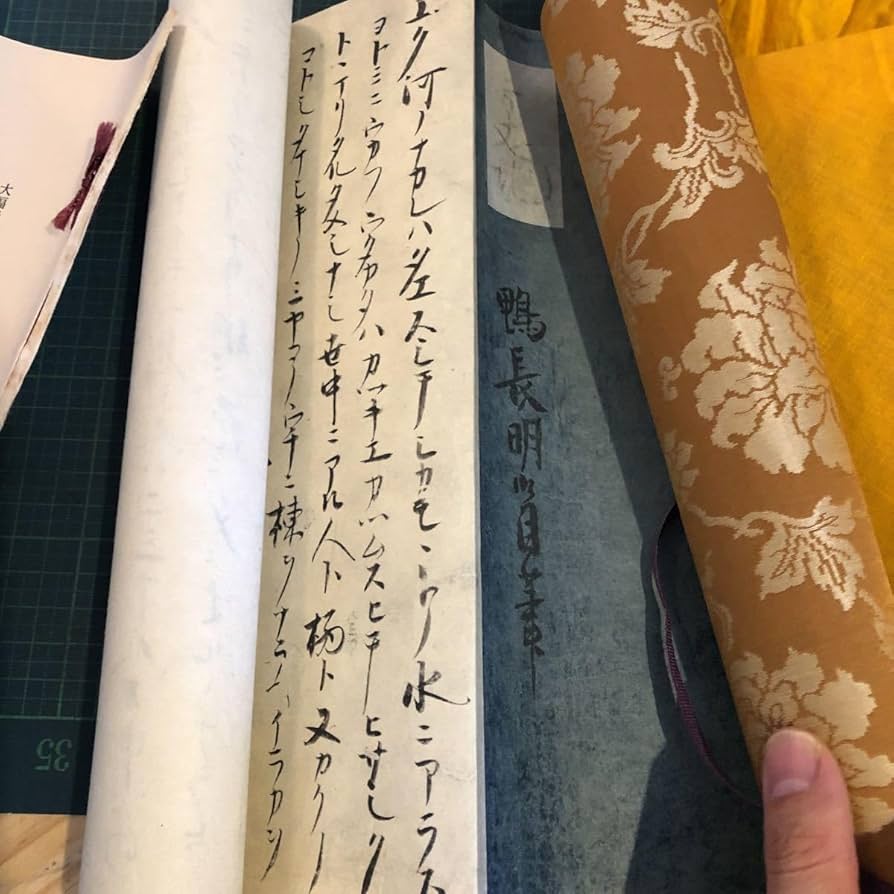 鴨長明自筆
ユク河ノナカレハタエスシテシカモモトノ水ニアラス
ヨトミニウカフウタカタハカツキエカツムスヒテヒサシク
トヽマリタルタメシナシ世中ニアル人ト栖ト又カクノ
コトシタマシキノミヤコノウチニ棟ヲナラヘイラカヲ
大福
35